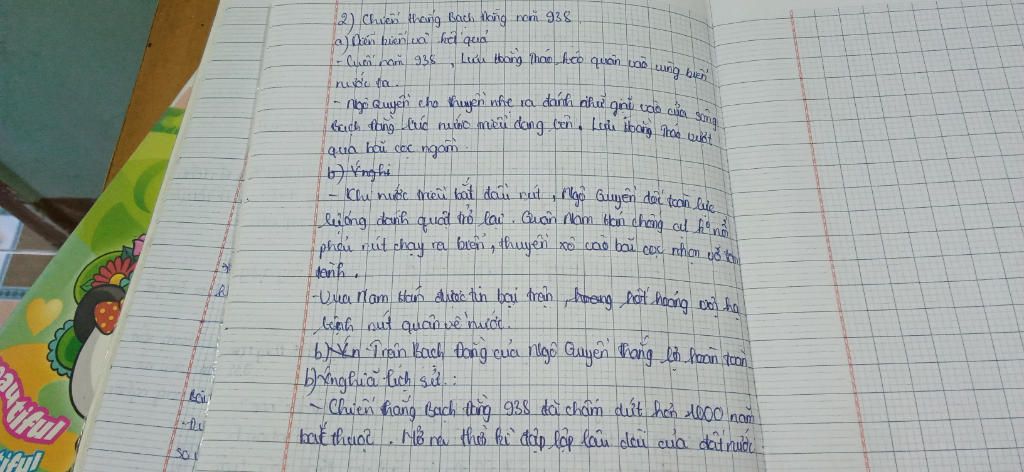 2) Chiến thắng Bạch Đằng năm 938
a) Diễn biến và kết quả
- Cuối năm 938, Lưu Hoằng Tháo kéo quân vào vùng biển
nước ta.
- Ngô Quyền cho thuyền nhẹ ra đánh nhử giặc vào cửa sông
Bạch Đằng lúc nước triều dâng lên. Lưu Hoằng Tháo vượt
qua bãi cọc ngầm.
b) Ý nghi
- Khi nước triều bắt đầu rút, Ngô Quyền dốc toàn lực
lượng đánh quật trở lại. Quân Nam Hán chống cự không nổi
phải rút chạy ra biển, thuyền xô vào bãi cọc nhọn vỡ tan
tành.
- Vua Nam Hán được tin bại trận hốt hoảng vội hạ
lệnh rút quân về nước.
b) Trận Bạch Đằng của Ngô Quyền thắng lợi hoàn toàn
b) Ý nghĩa lịch sử:
- Chiến thắng Bạch Đằng 938 đã chấm dứt hơn 1000 năm
bắc thuộc. Mở ra thời kì độc lập lâu dài của đất nước
Bài
beautiful
iful